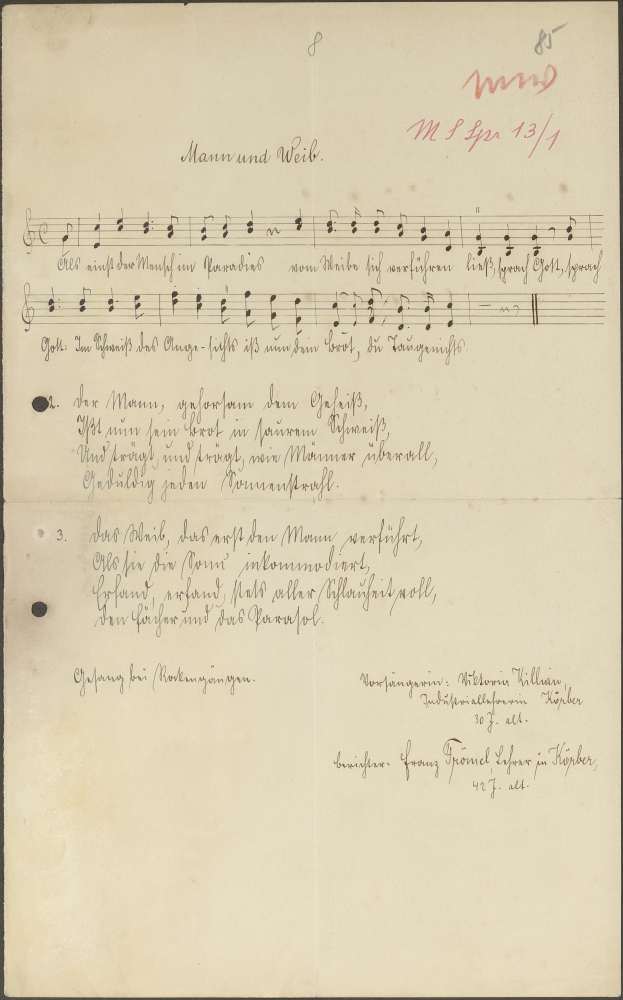 8
85
M S Spr 13/1
Mann und Weib.
Als einst der Mensch im Paradies vom Weibe sich verführen ließ, sprach Gott, sprach
Gott: Im Schweiß des Ange-sichts iß nun dein Brot, du Taugenichts
2. Der Mann, gehorsam dem Geheiß,
Ißt nun sein Brot in saurem Schweiß,
Und trägt, und trägt, wie Männer überall,
Geduldig jeden Sonnenstrahl.
3. Das Weib, das erst den Mann verführt,
Als sie die Sonn' inkommodiert,
Erfand, erfand, stets aller Schlauheit voll,
Den Fächer und das Parasol.
Gesang bei Rockengängen.
Vorsängerin: Viktoria Killian,
Industriallehrerin Körber
30 J. alt.
Berichter: Franz Trömel, Lehrer in Körber,
42 J. alt.